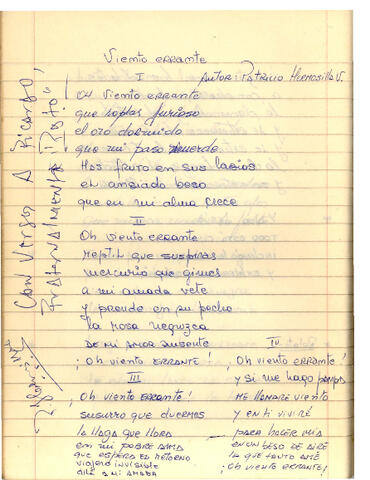 Viento errante
I
Autor: Patricio Hermosilla V.
Oh viento errante
que soplas furioso
el oro dormido
que mi paso
Haz fruto en sus labios
el ansiado beso
que en mi alma crece
II
Oh viento errante
reptil que suspiras
mercurio que gimes
a mi amada vete
y prende en su pecho
la rosa negruzca
de mi amor ausente
¡Oh viento errante!
III
¡Oh viento errante!
susurro que duermes
la llaga que llora
en mi pobre alma
que espera el retorno
viajero invisible
dile a mi amada
IV
¡Oh viento errante!
y si me hago pampa
me llenaré viento
y en ti viviré
para hacer mía
en un beso de aire
la que tanto amé
¡Oh viento errante!
Con versos A Ricardo,
Fraternalmente "Pato"